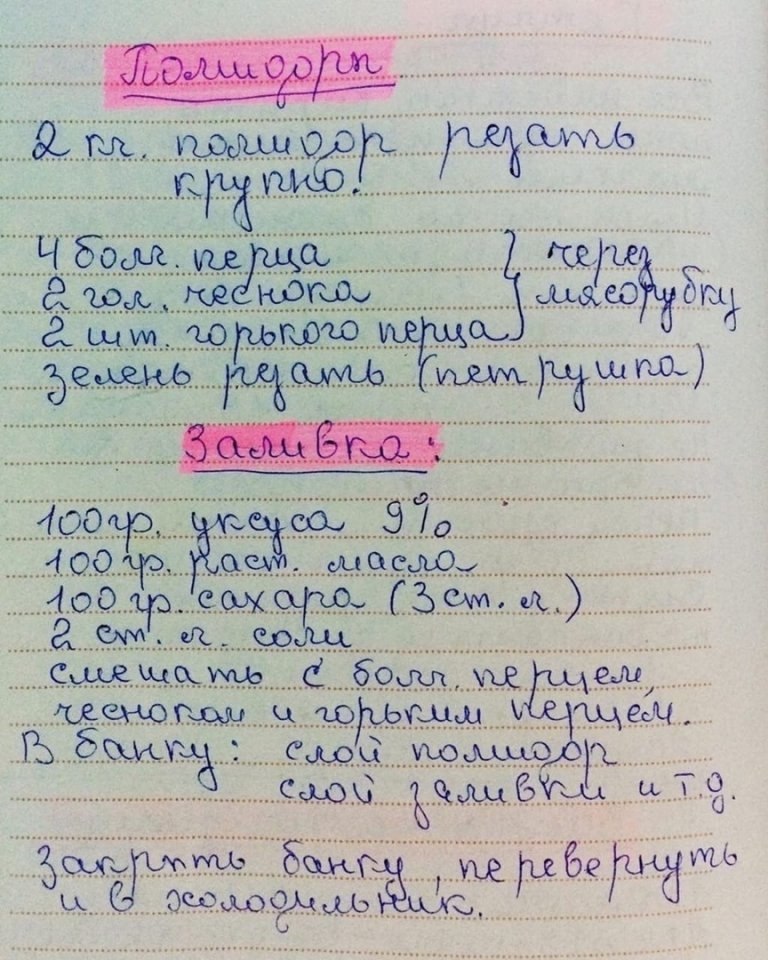 Помидоры
2 кг. помидор резать
крупно!
4 болг. перца } через
2 гол. чеснока мясорубку
2 шт. горького перца
зелень резать (петрушка)
Заливка:
100 гр. уксуса 9%
100 гр. раст. масла
100 гр. сахара (3 ст. л.)
2 ст. л. соли
смешать с болг. перцем,
чесноком и горьким перцем.
В банку: слой помидор
слой заливки и т.д.
Закрыть банку, перевернуть
и в холодильник.